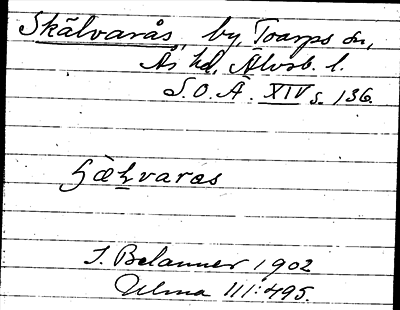 Skälvarås by, Toarps sn,
Ås hd, Älvsb. l.
S.O.Ä. XIV s. 136.
J. Belanner 1902
Ulma 111:495.